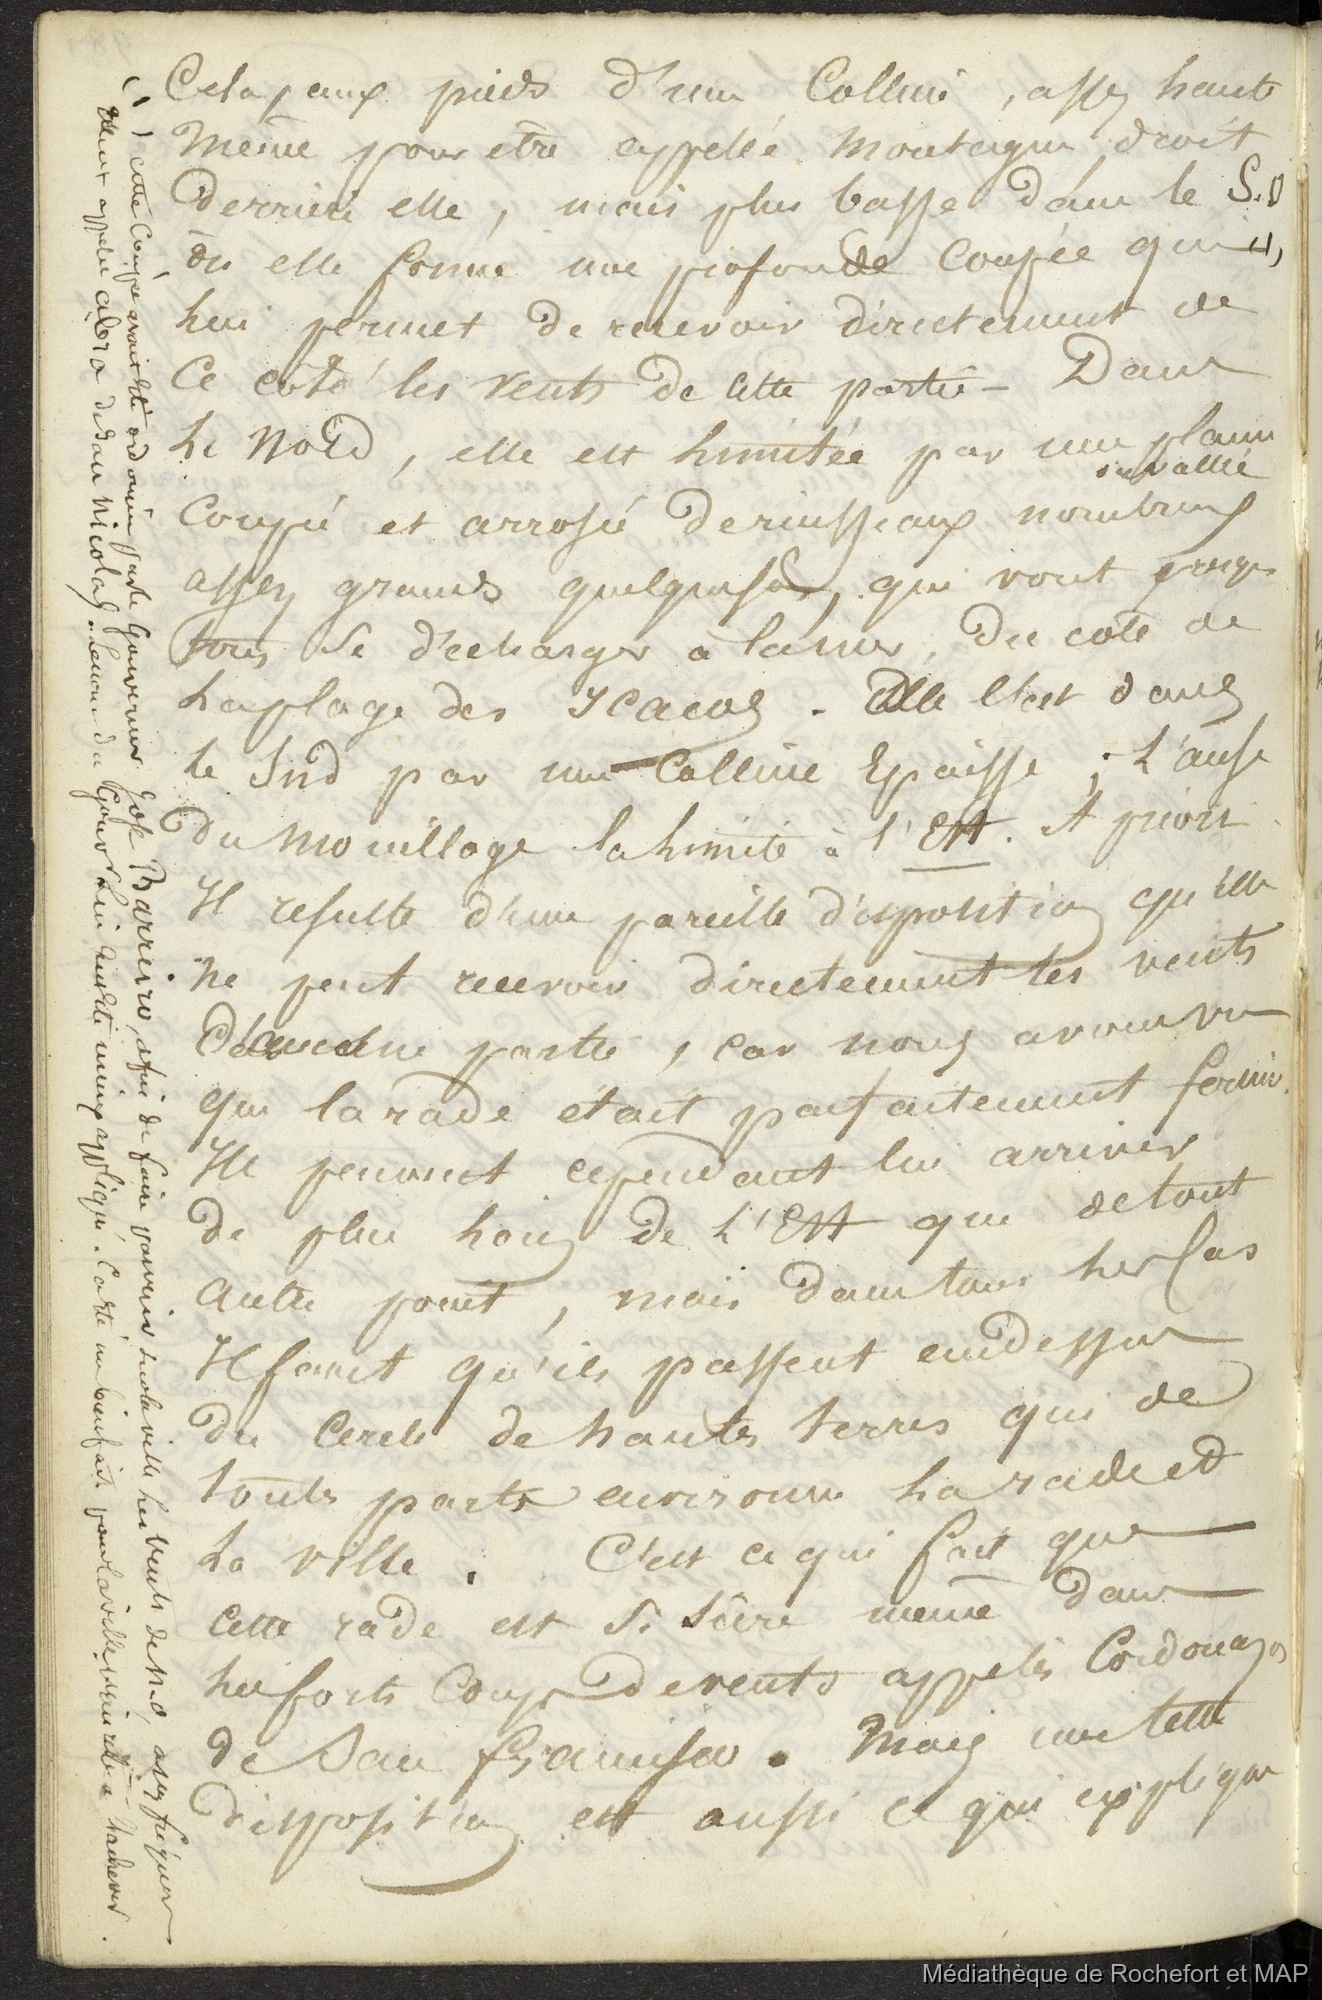 Cela, aux pieds d'une Colline, assez haute
même pour être appelée montagne droit
derrière elle, mais plus basse dans le S.O
où elle forme une profonde Coupée qui (1)
lui permet de recevoir directement de
Ce côté les vents de cette partie - Dans
le Nord, elle est limitée par une plaine
ou vallée
Coupée et arrosée de ruisseaux nombreux
assez grands quelquefois, qui vont presque
tous se décharger à la mer, du côté de
la plage des Ycacos. Elle l'est dans
le Sud par une Colline Epaisse; L'anse
du mouillage la limite à l'Est. A priori
Il résulte d'une pareille disposition qu'elle
ne peut recevoir directement les vents
d'aucune partie, car nous avons vu
que la rade était parfaitement fermée.
Ils peuvent cependant lui arriver
de plus loin de L'Est que de tout
autre point, mais dans tous les Cas
Il faut qu'ils passent en dessus
du Cercle de hautes terres qui de
toutes parts environne la rade et
la ville. C'est ce qui fait que
cette rade est si sûre même dans
les forts Coups de vents appelés Cordonazos
de San francisco. Mais une telle
disposition est aussi ce qui explique
(1) cette Coupée avait été ordonnée par le gouverneur José Barreiro, afin de faire parvenir dans la ville les vents de N.O, assez fréquens
Elle est appelée abra de San Nicolas. le nom du Gouvr lui eut été mieux appliqué. C'eût été un bienfait pour la ville mais reste à l'achever.